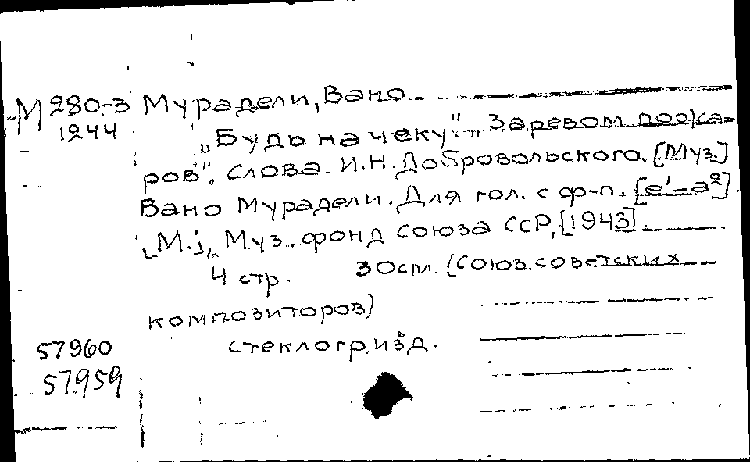 М 280-3 Мурадели, Вано
1244
„Будь на чеку". „Заревом пожа-
ров". Слова И.Н.Добровольского. [Муз.]
Вано Мурадели. Для гол. с ф-п. [e'-a²].
М., Муз. фонд Союза ССР, [1943].
4 стр. 30см. (Союз советских
композиторов)
стеклогр. изд.
57960
57959